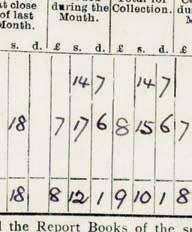 at close during the Total for
of last Month. Collection. du
Month.
s. d. £ s. d. £ s. d. £
14 7 14 7
18 7 17 6 8 15 6 7
18 8 12 1 9 10 1 8
the Report Books of the s